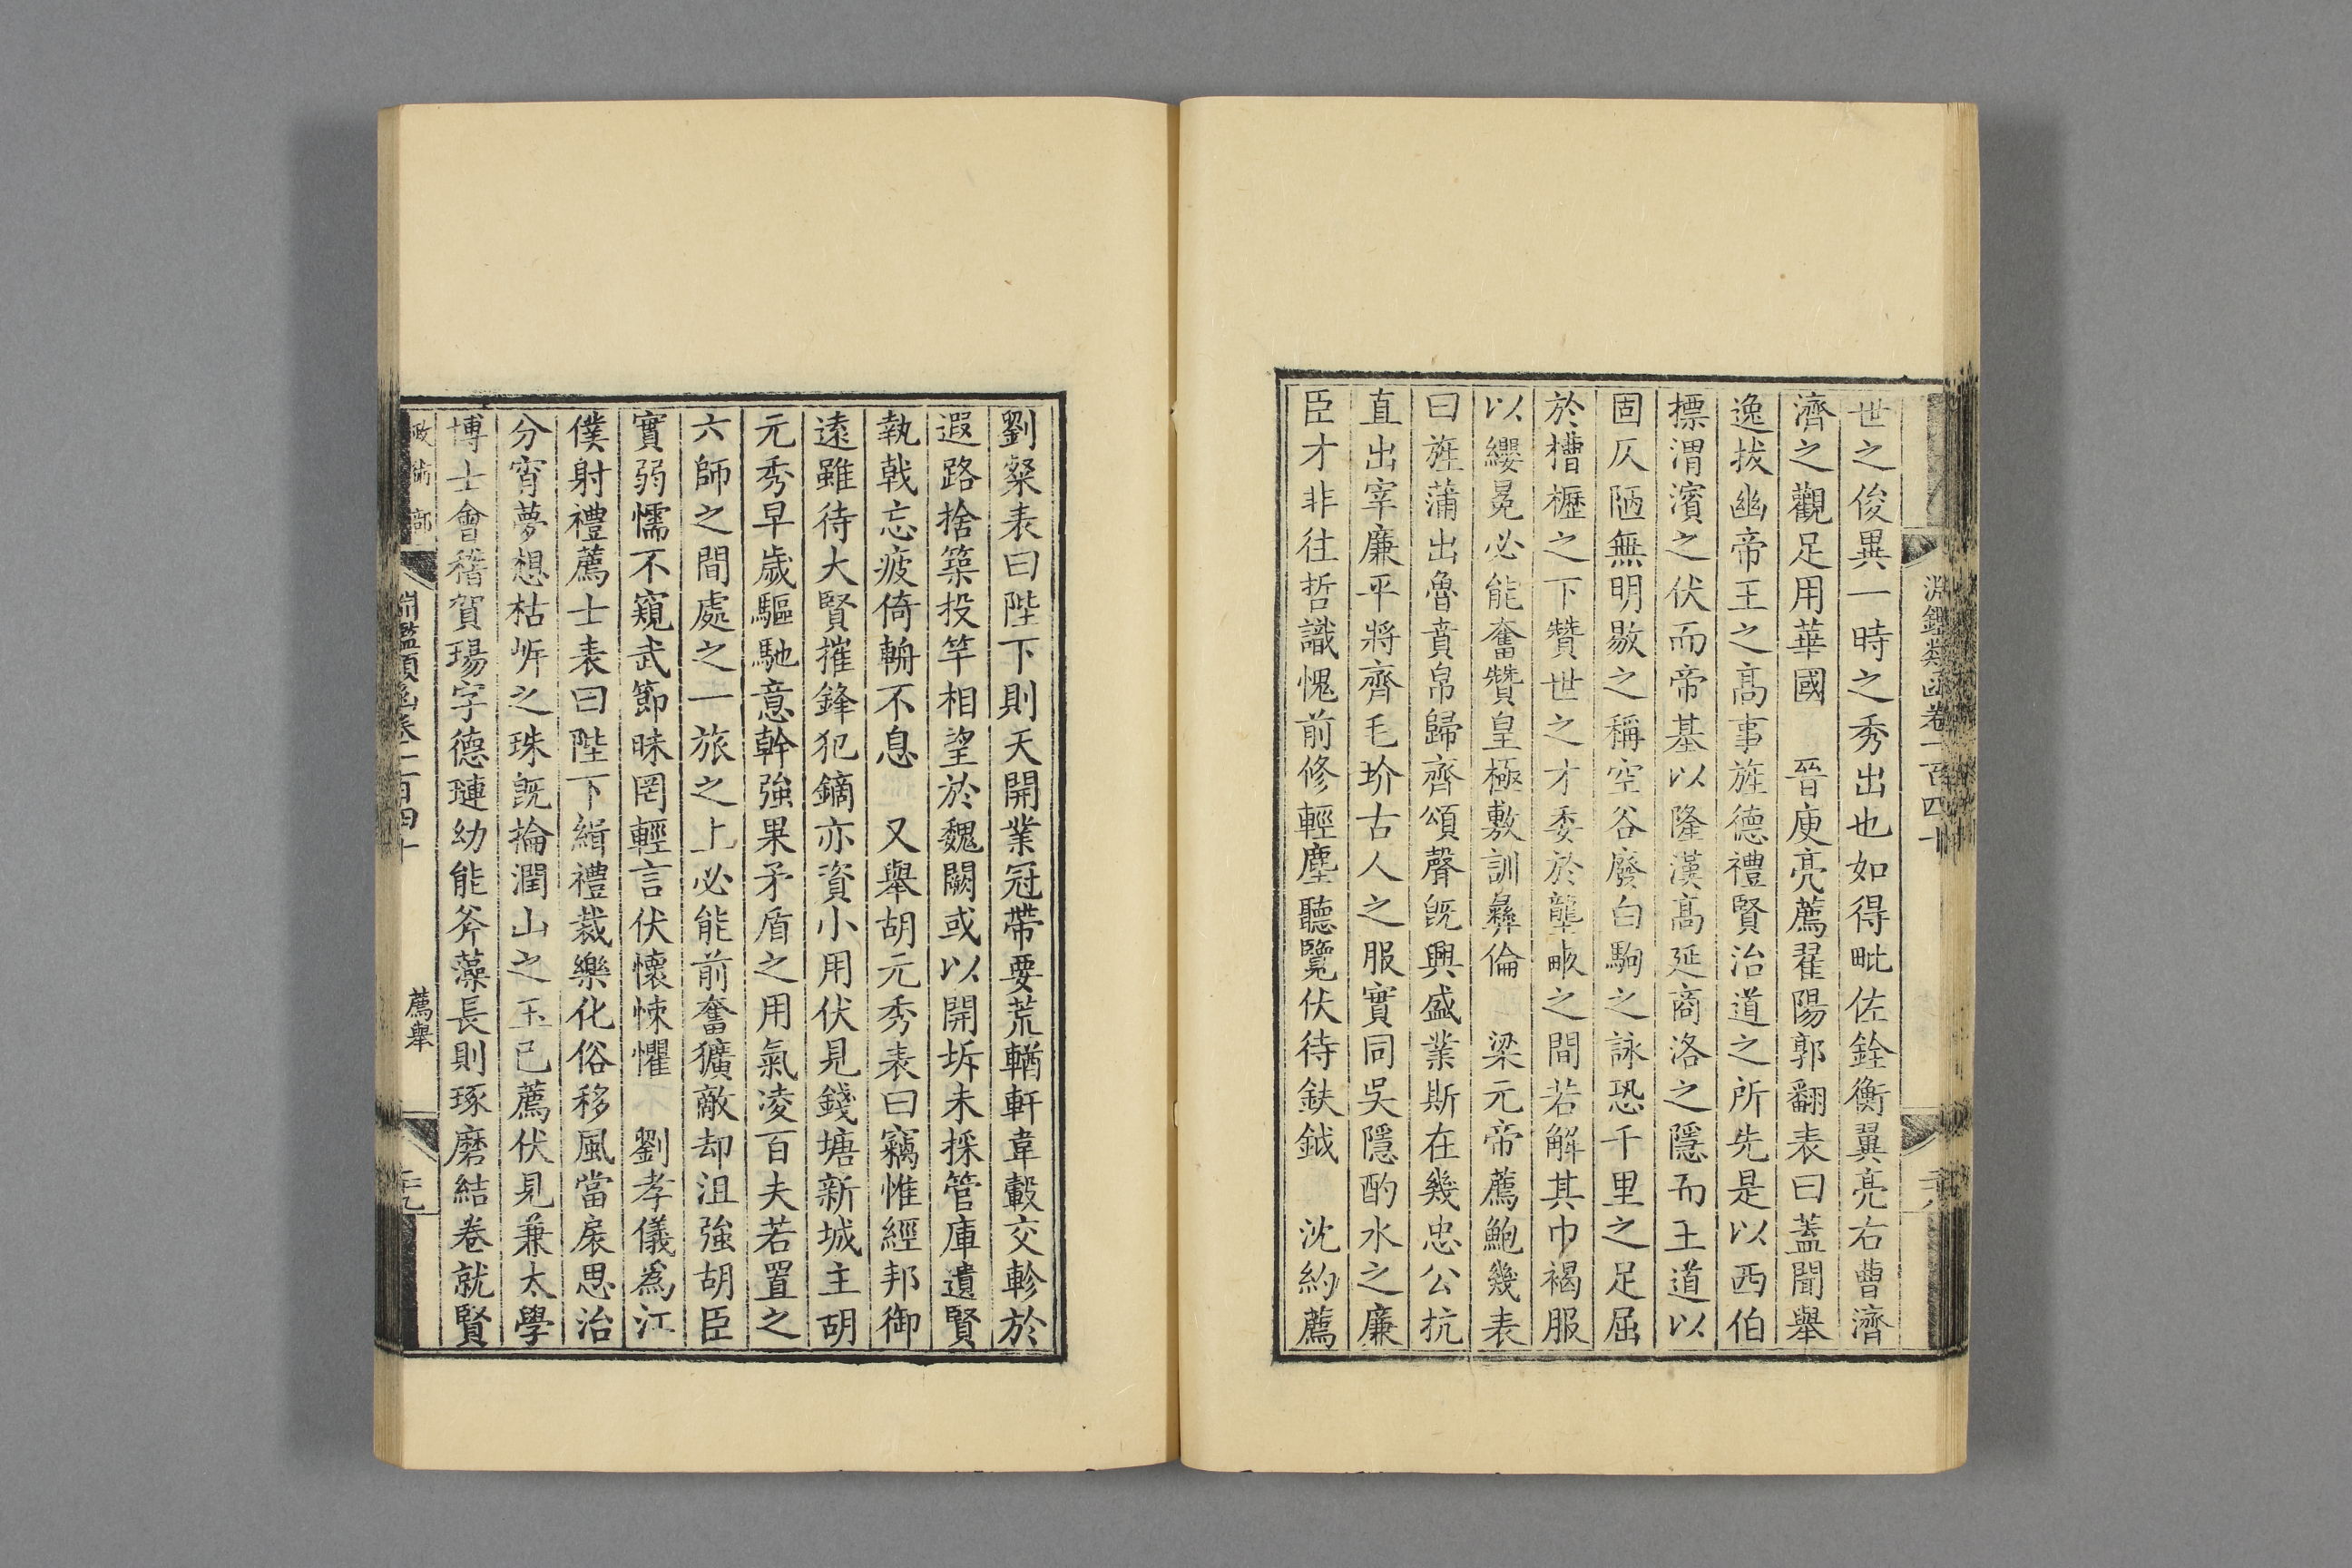 淵鑑類函卷一百四十
世之俊異一時之秀出也如得毗佐銓衡翼亮右曹濟
濟之觀足用華國　晉庾亮薦翟陽郭翻表曰蓋聞舉
逸拔幽帝王之高事旌德禮賢治道之所先是以西伯
摽渭濱之伏而帝基以隆漢高延商洛之隱而王道以
固仄陋無明敭之稱空谷廢白駒之詠恐千里之足屈
於槽櫪之下贊世之才委於壟畝之間若解其巾褐服
以纓冕必能奮贊皇極敷訓彝倫　梁元帝薦鮑幾表
曰旌蒲出魯賁帛歸齊頌聲旣興盛業斯在幾忠公抗
直出宰廉平將齊毛玠古人之服實同吳隱酌水之廉
臣才非往哲識愧前修輕塵聽覽伏待鈇鉞　沈約薦
劉粲表曰陛下則天開業冠帶要荒輶軒韋轂交軫於
遐路捨築投竿相望於魏闕或以開坼未採管庫遺賢
執戟忘疲倚輈不息　又舉胡元秀表曰竊惟經邦御
遠雖待大賢摧鋒犯鏑亦資小用伏見錢塘新城主胡
元秀早歲驅馳意幹強果矛盾之用氣凌百夫若置之
六師之間處之一旅之上必能前奮獷敵却沮強胡臣
實弱懦不窺武節昧罔輕言伏懷悚懼　劉孝儀爲江
僕射禮薦士表曰陛下緝禮裁樂化俗移風當扆思治
分宵夢想枯岸之珠旣掄潤山之玉已薦伏見兼太學
博士會稽賀瑒字德璉幼能斧藻長則琢磨結卷就賢
政術部
淵鑑類函卷一百四十
薦舉